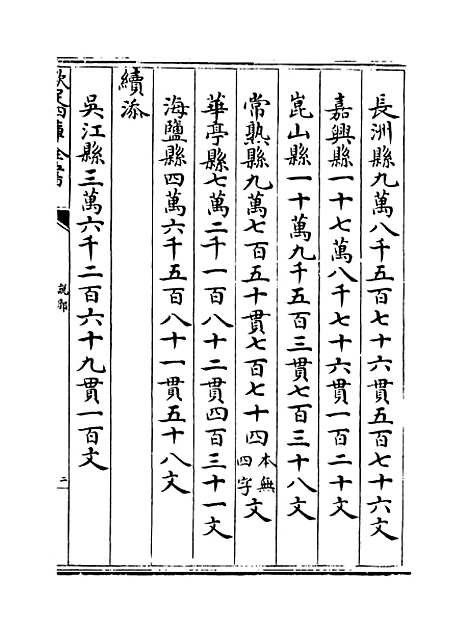 長洲縣九萬八千五百七十六貫五百七十六文
嘉興縣一十七萬八千七十六貫一百二十文
崑山縣一十萬九千五百三貫七百三十八文
常熟縣九萬七百五十貫七百七十四本無四字文
華亭縣七萬二千一百八十二貫四百三十一文
海鹽縣四萬六千五百八十一貫五十八文
續添
吳江縣三萬六千二百六十九貫一百文
欽定四庫全書
說郛
二